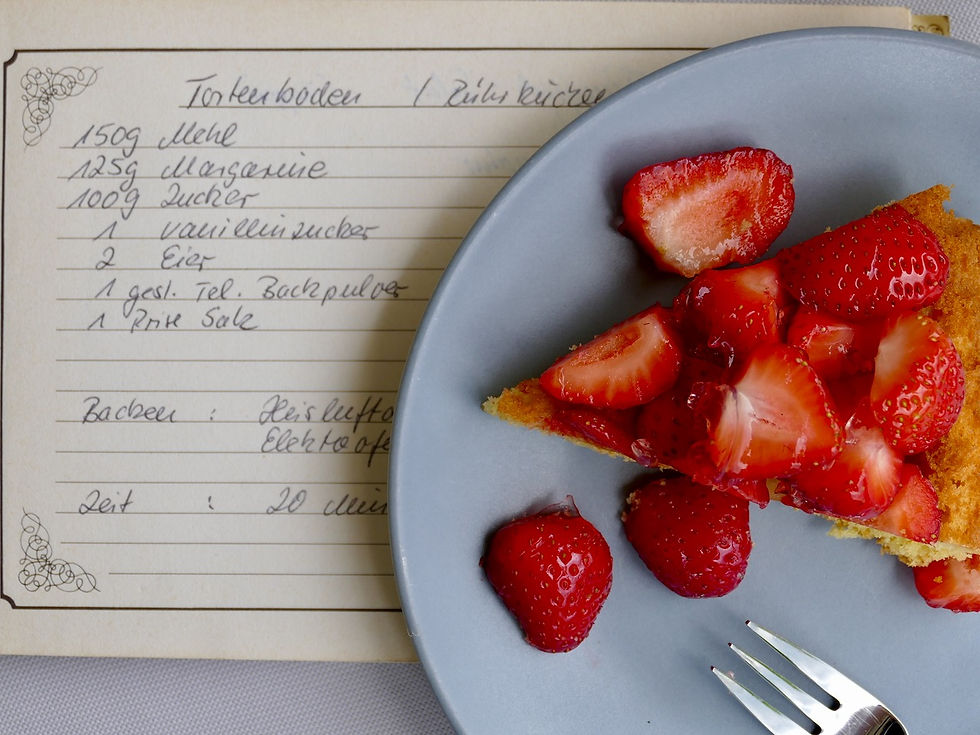 Tortenboden / Rührkuchen
150g Mehl
125g Margarine
100g Zucker
1 Vanillinzucker
2 Eier
1 gestr. Tel. Backpulver
1 Prise Salz
Backen : Heislufto
Elektroofe
Zeit : 20 Min